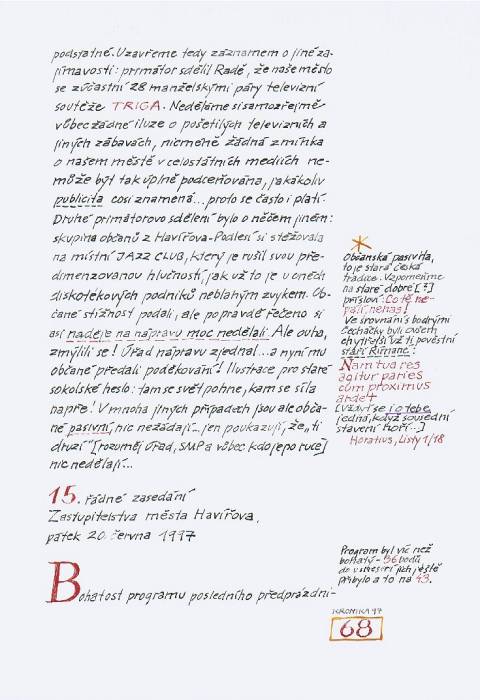 podstatné. Uzavřeme tedy záznamem o jiné za-
jímavosti: primátor sdělil Radě, že naše město
se zúčastní 28 manželskými páry televizní
soutěže TRIGA. Neděláme si samozřejmě
vůbec žádné iluze o pošetilých televizních a
jiných zábavách, nicméně žádná zmínka
o našem městě v celostátních mediích ne-
může být tak úplně podceňována, jakákoliv
publicita cosi znamená... proto se často i platí.
Druhé primátorovo sdělení bylo o něčem jiném:
skupina občanů z Havířova-Podlesí si stěžovala
na místní JAZZ CLUB, který je rušil svou pře-
dimenzovanou hlučností, jak už to je u oněch
diskotékových podniků neblahým zvykem. Ob-
čané stížnost podali, ale popravdě řečeno si
asi naděje na nápravu moc nedělali. Ale ouha,
zmýlili se! Úřad nápravu zjednal...a nyní mu
občané předali poděkování! Ilustrace pro staré
sokolské heslo: tam se svět pohne, kam se síla
napře! V mnoha jiných případech jsou ale obča-
né pasivní, nic nežádají... jen poukazují, že „ti
druzí" [rozuměj Úřad, SMP a vůbec kdo je po ruce]
nic nedělají...
Občanská pasivita,
to je stará česká
tradice. Vzpomeňme
na staré dobré [?]
přísloví: Co tě ne-
pálí, nehas!
Ve srovnání s bodrými
Čecháčky byli ovšem
chytřejší už ti pověstní
staří Římané:
Nam tua res
agitur paries
cum proximus
ardet
[Vždyť se i o tebe
jedná, když sousední
stavení hoří...]
Horatius, Listy 1/18
15. řádné zasedání
Zastupitelstva města Havířova,
pátek 20. června 1997
Program byl víc než
bohatý - 36 bodů
jich ještě
přibylo a to na 43.
Bohatost programu posledního předprázdni-
KRONIKA 97
68